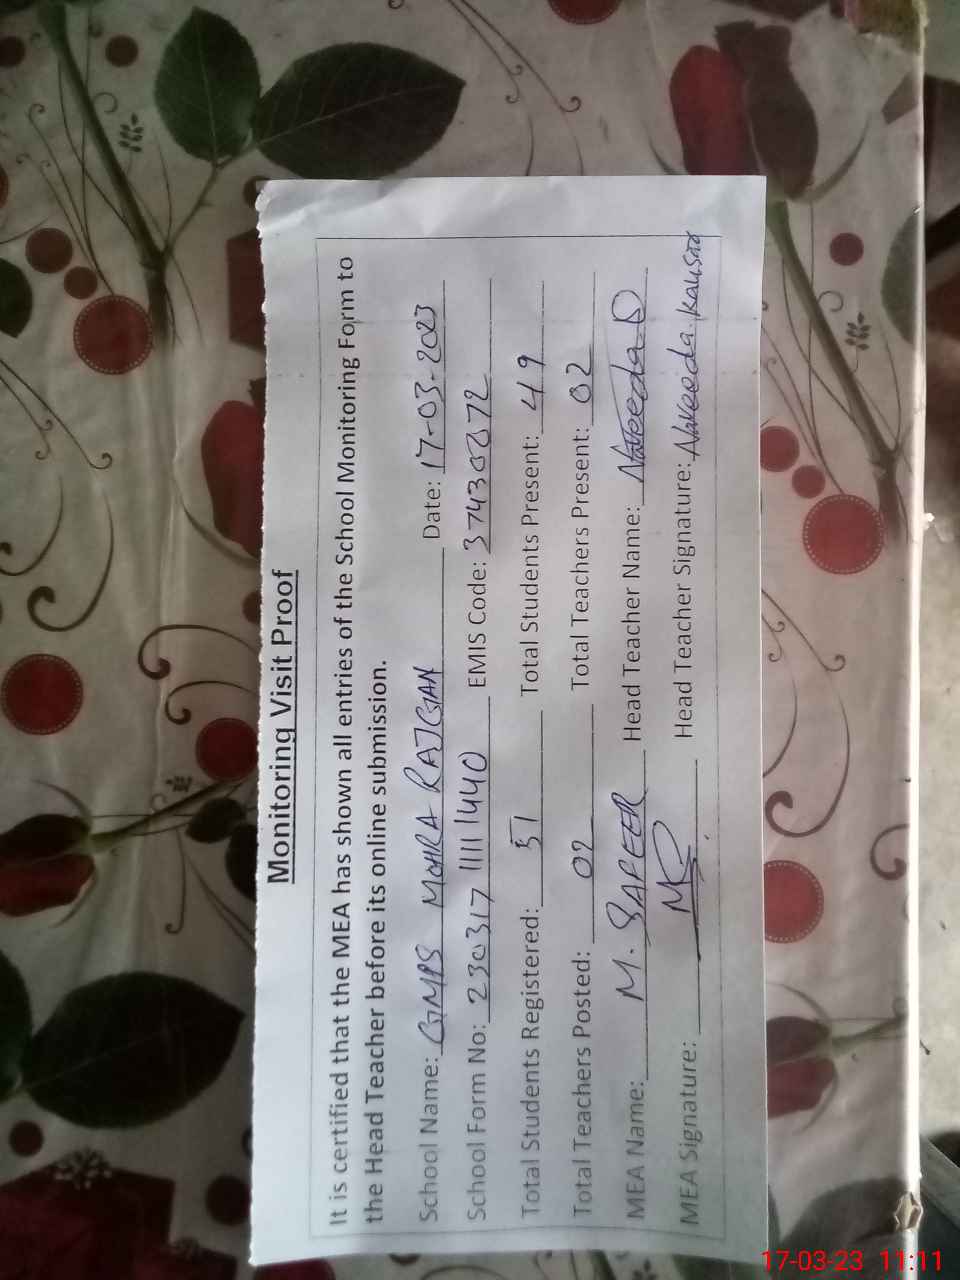 Monitoring Visit Proof
It is certified that the MEA has shown all entries of the School Monitoring Form to
the Head Teacher before its online submission.
School Name: GMPS MOHRA RAJGAN Date: 17-03-2023
School Form No: 230317 11111440 EMIS Code: 37430272
Total Students Registered: 51 Total Students Present: 49
Total Teachers Posted: 02 Total Teachers Present: 02
MEA Name: M. SAFEER Head Teacher Name: Naveeda
MEA Signature: Head Teacher Signature: Naveeda Kausar
17-03-23 11:11